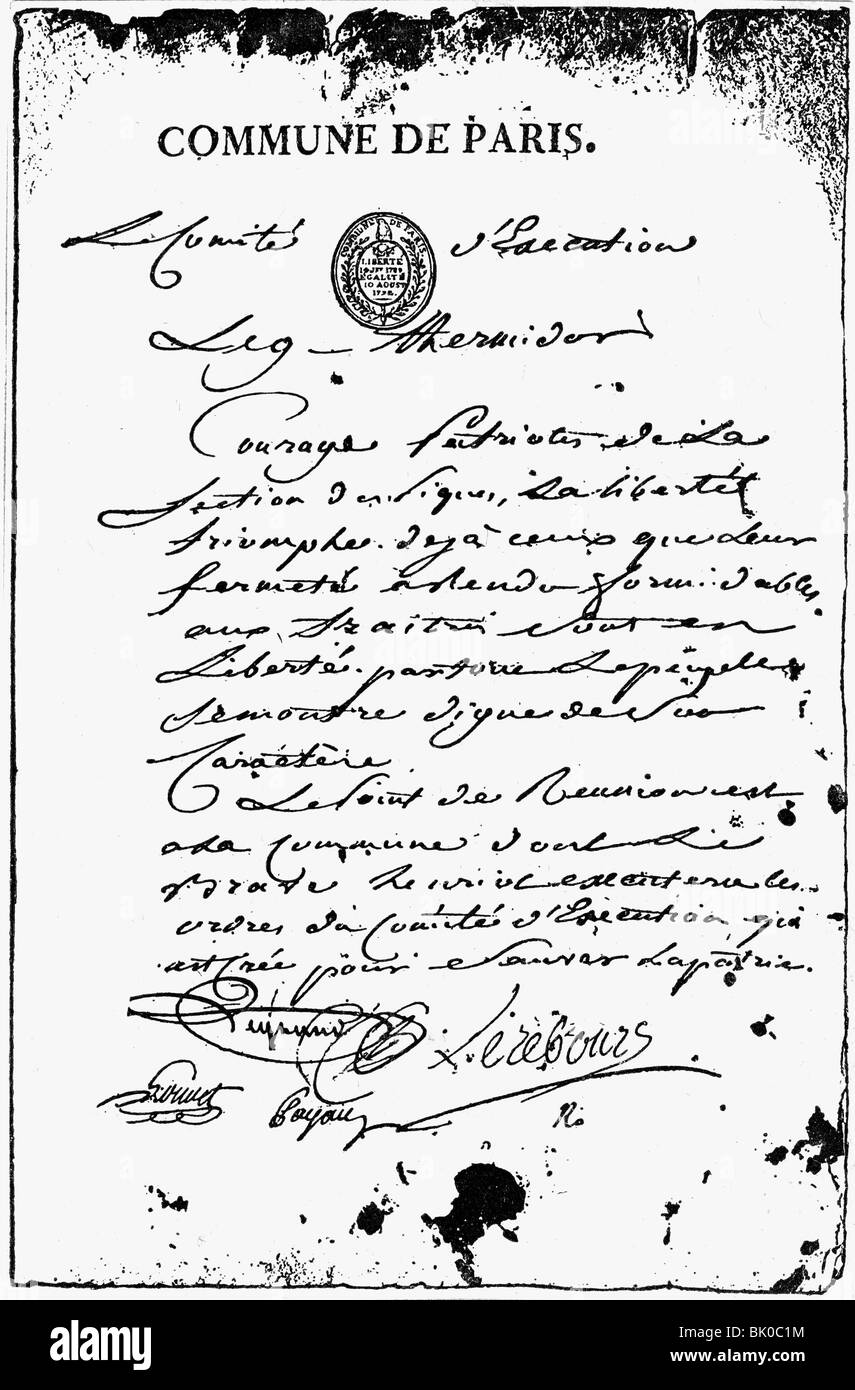 COMMUNE DE PARIS.
Le Comité d'Execution
COMMUNE DE PARIS
LIBERTÉ
14 JET 1789
EGALITÉ
10 AOUST
1792
Le 9 thermidor
Courage Patriotes de la
Section des Piques, la liberté
triomphe. dejà ceux que leur
fermeté a rendu formidables
aux traitres sont en
Liberté. partout le peuple
se montre digne de son
Caractère
Le Point de Reunion est
a la Commune dont le
Brave henriot executera les
ordres du Comité d'Execution qui
est Créé pour sauver la patrie.
Legrand Lerebours
Louvet Payan Ro
alamy
Image ID: BK0C1M
www.alamy.com